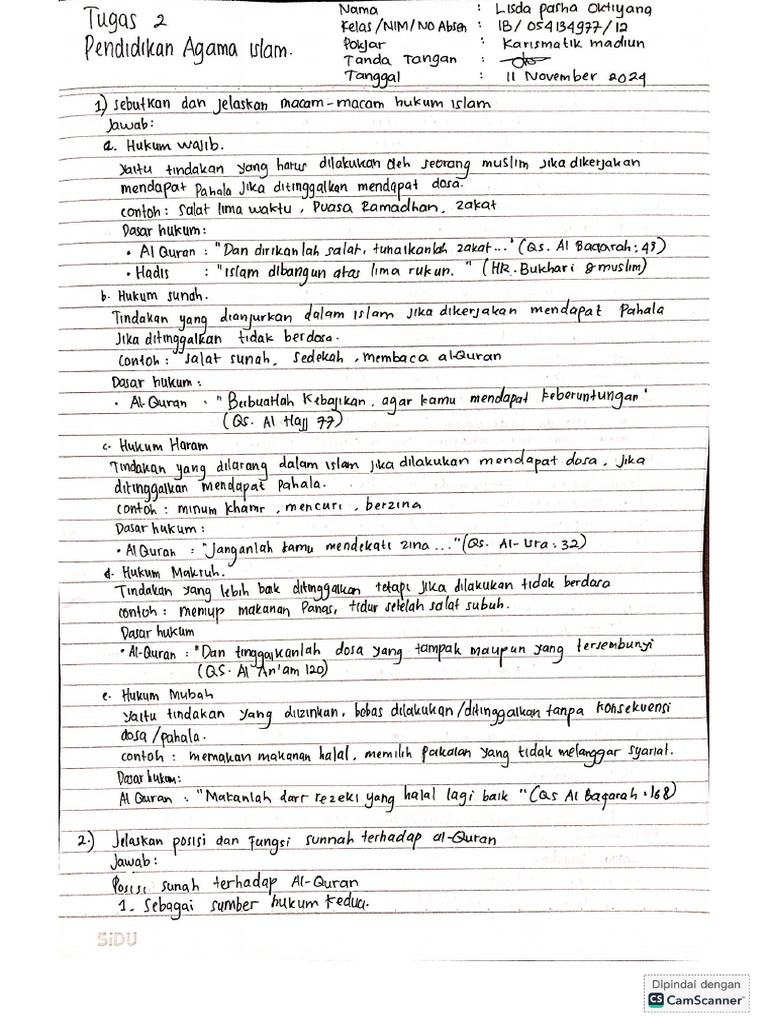 Tugas 2
Pendidikan Agama Islam.
Nama : Lisda pasha Oktiyana
Kelas/NIM/NO Absen : 1B/ 054134977/12
Pokjar : Karismatik madiun
Tanda Tangan :
Tanggal : 11 November 2024
1) sebutkan dan jelaskan macam-macam hukum islam
Jawab:
a. Hukum wajib.
yaitu tindakan yang harus dilakukan oleh seorang muslim jika dikerjakan
mendapat pahala jika ditinggalkan mendapat dosa.
contoh : salat lima waktu, Puasa Ramadhan, zakat
Dasar hukum:
• Al Quran : "Dan dirikanlah salat, tunaikanlah zakat..." (Qs. Al Baqarah : 43)
• Hadis : "Islam dibangun atas lima rukun. " (HR. Bukhari & muslim)
b. Hukum sunah.
Tindakan yang dianjurkan dalam islam jika dikerjakan mendapat pahala
jika ditinggalkan tidak berdosa.
contoh : salat sunah, sedekah, membaca al-Quran
Dasar hukum :
• Al-Quran : "Berbuatlah kebajikan, agar kamu mendapat keberuntungan"
(Qs. Al Hajj 77)
c. Hukum Haram
Tindakan yang dilarang dalam islam jika dilakukan mendapat dosa, jika
ditinggalkan mendapat pahala.
contoh : minum khamr, mencuri, berzina
Dasar hukum :
• Al Quran : "Janganlah kamu mendekati zina ..." (Qs. Al-Isra : 32)
d. Hukum Makruh.
Tindakan yang lebih baik ditinggalkan tetapi jika dilakukan tidak berdosa
contoh : meniup makanan panas, tidur setelah salat subuh.
Dasar hukum
• Al-Quran : "Dan tinggalkanlah dosa yang tampak maupun yang tersembunyi
(QS. Al An'am 120)
e. Hukum Mubah
yaitu tindakan yang diizinkan, bebas dilakukan/ditinggalkan tanpa konsekuensi
dosa/pahala.
contoh : memakan makanan halal, memilih pakaian yang tidak melanggar syariat.
Dasar hukum:
Al Quran : "Makanlah dari rezeki yang halal lagi baik " (Qs Al Baqarah : 168)
2.) Jelaskan posisi dan Fungsi sunnah terhadap al-Quran
Jawab :
Posisi sunah terhadap Al-Quran
1. Sebagai sumber hukum kedua.
SiDU
Dipindai dengan
CS CamScanner